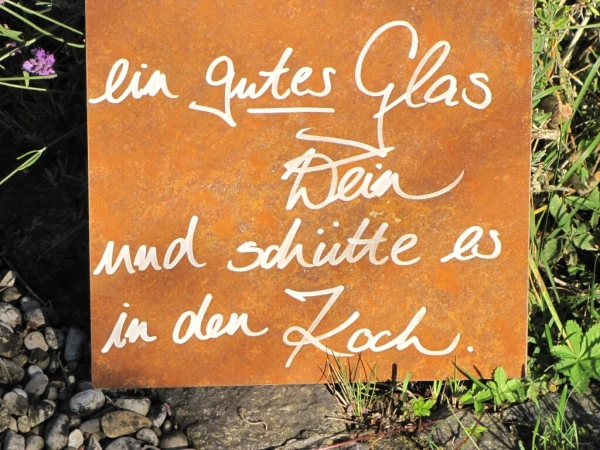 ein gutes Glas
Wein
und schütte es
in den Koch.